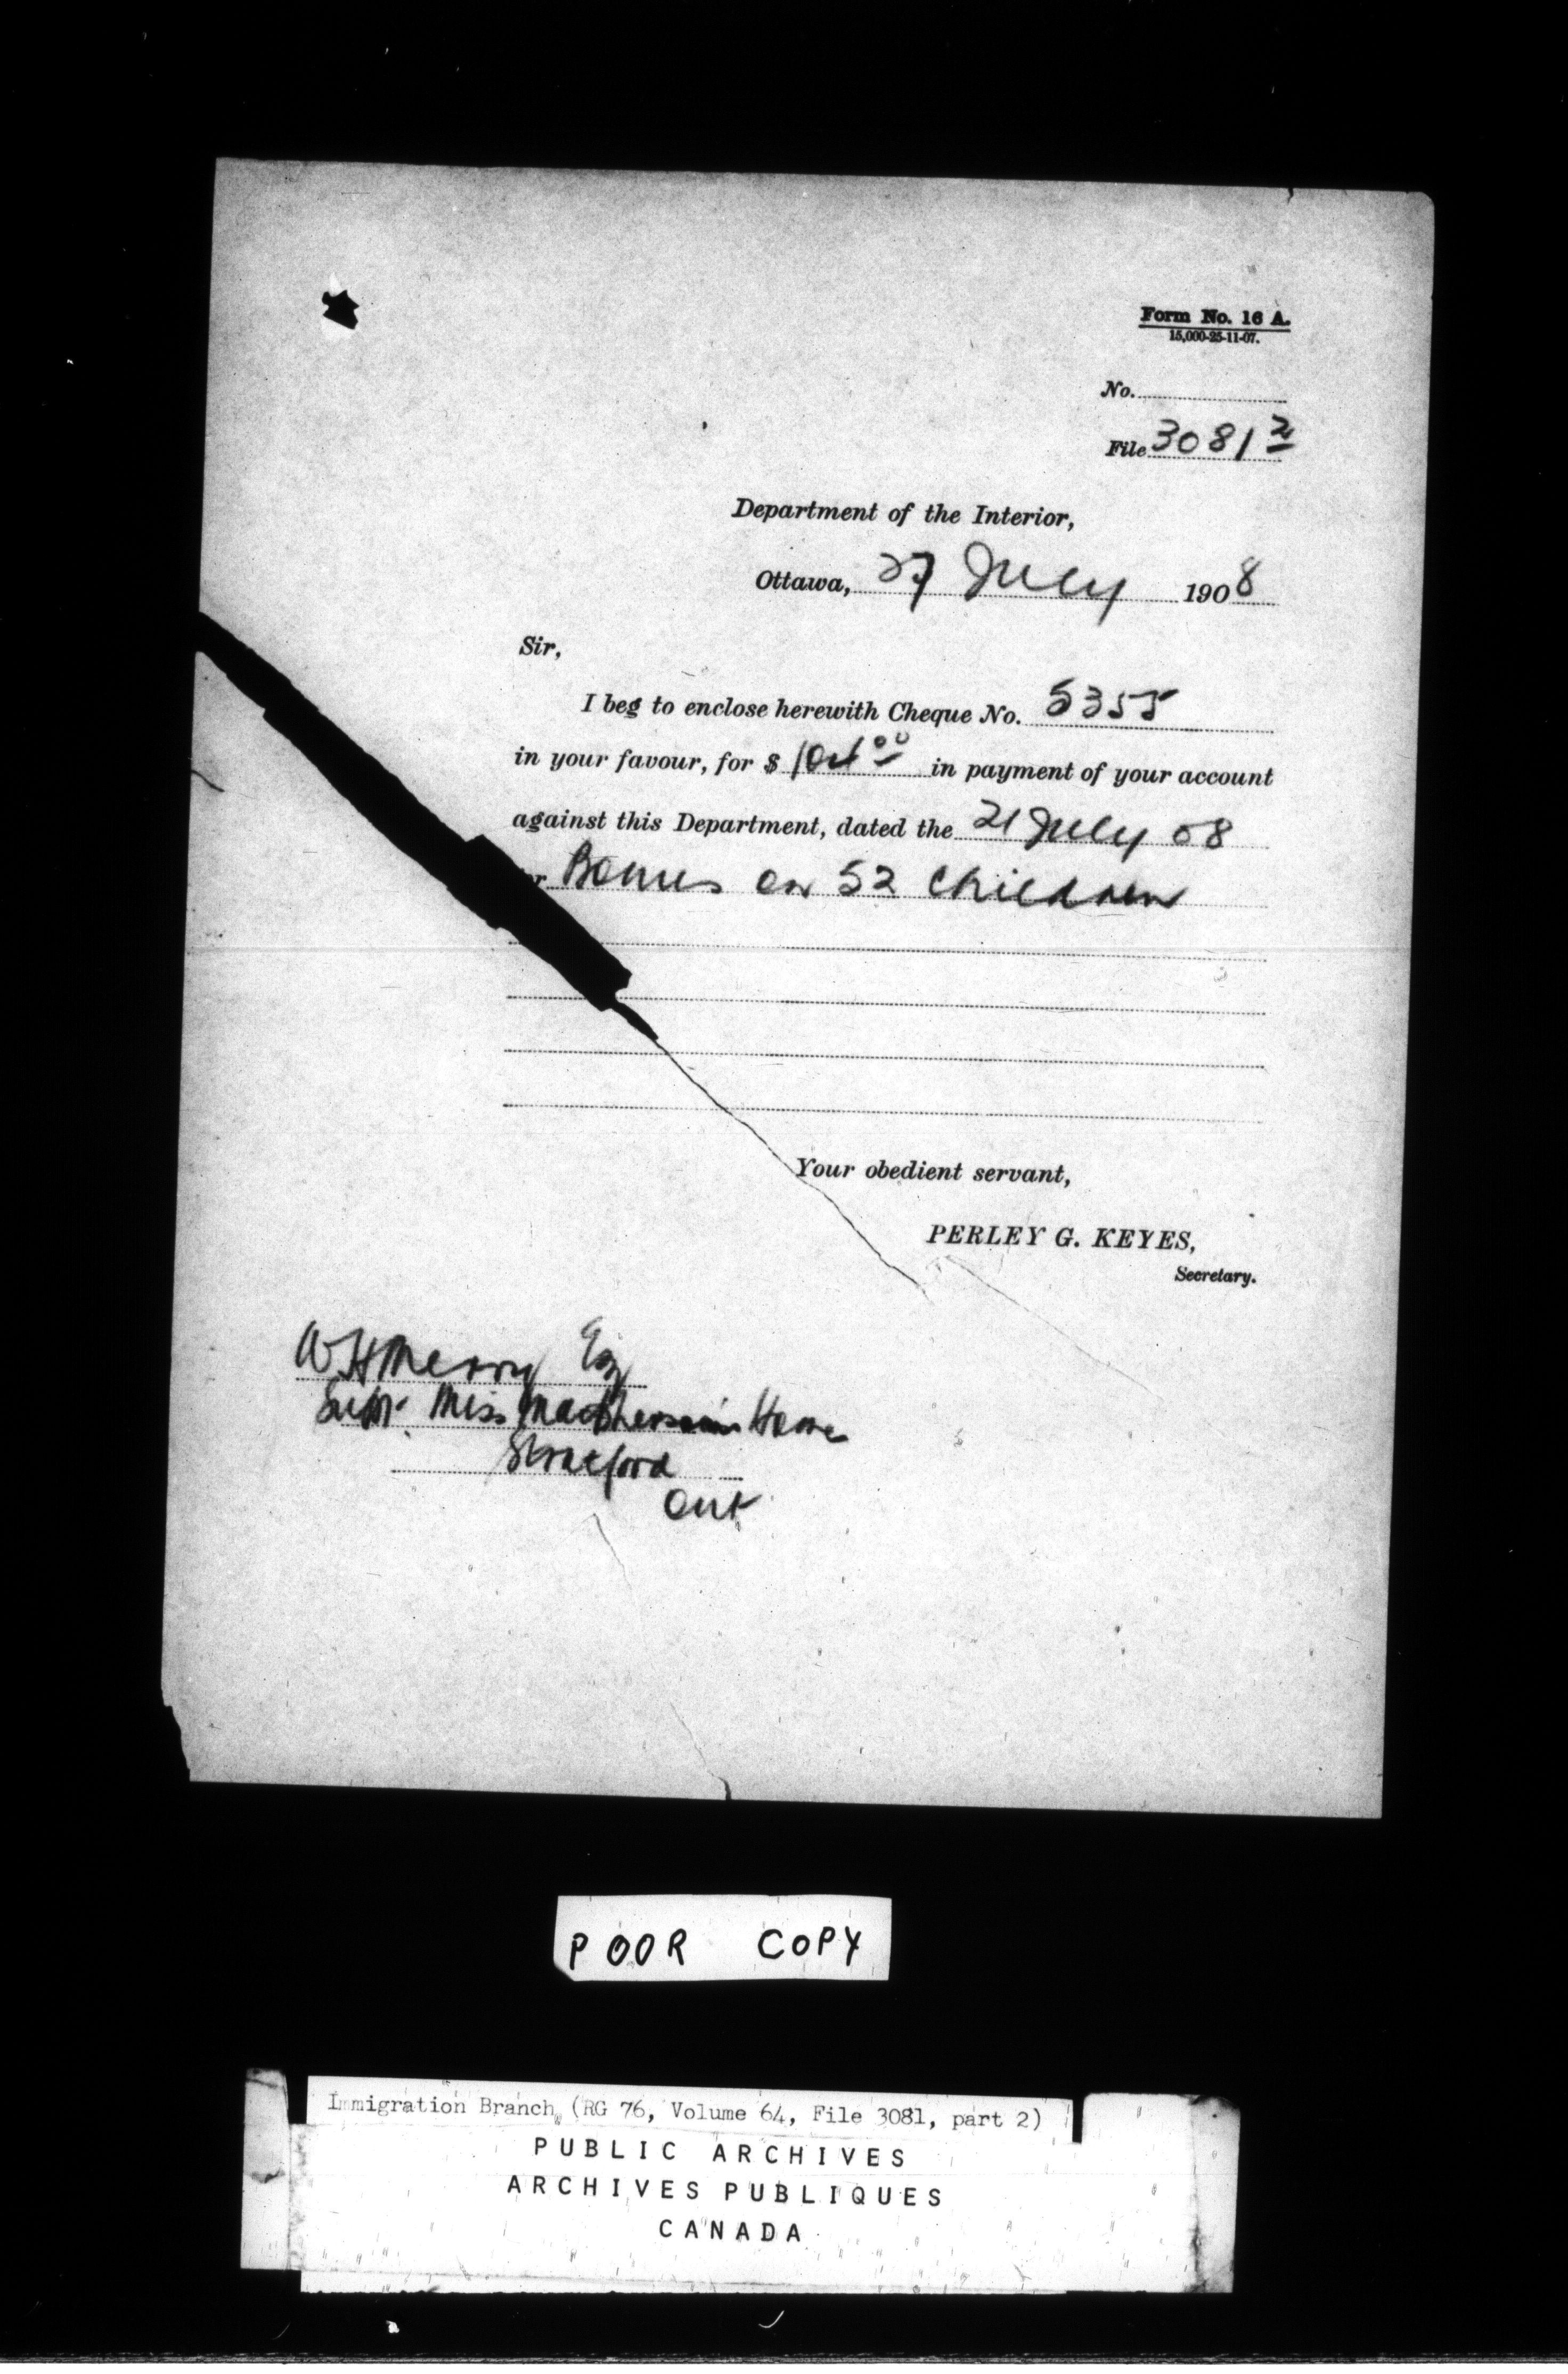 Form No. 16 A.
15,000-25-11-07.
No.
File 3081 2
Department of the Interior,
Ottawa, 27 July 1908
Sir,
I beg to enclose herewith Cheque No. 5355
in your favour, for $ 104 00 in payment of your account
against this Department, dated the 21 July 08
Bonus on 52 children
Your obedient servant,
PERLEY G. KEYES,
Secretary.
W H Merry Esq
Supt. Miss Macphersons Home
Stratford
Ont
POOR COPY
Immigration Branch (RG 76, Volume 64, File 3081, part 2)
PUBLIC ARCHIVES
ARCHIVES PUBLIQUES
CANADA